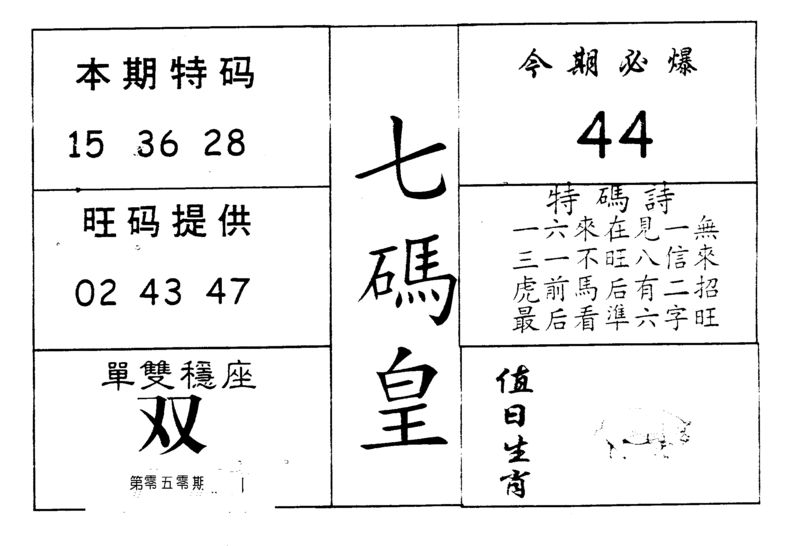 本期特码
15 36 28
旺码提供
02 43 47
單雙穩座
双
第零五零期
七碼皇
今期必爆
44
特碼詩
一六來在見一無
三一不旺八信來
虎前馬后有二招
最后看準六字旺
值日生肖